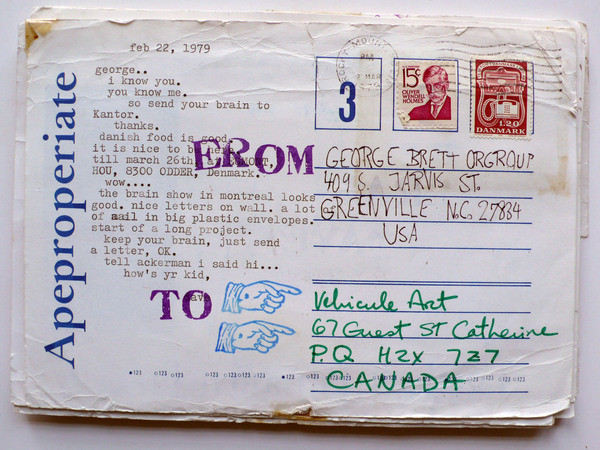 Apeproperiate
feb 22, 1979
george..
i know you.
you know me.
so send your brain to
Kantor.
thanks.
danish food is good.
it is nice to be here
till march 26th. at
HOU, 8300 ODDER, Denmark.
wow....
the brain show in montreal looks
good. nice letters on wall. a lot
of mail in big plastic envelopes.
start of a long project.
keep your brain, just send
a letter, OK.
tell ackerman i said hi...
how's yr kid,
PM
3
15¢
OLIVER
WENDELL
HOLMES
1.20
DANMARK
EROM
GEORGE BRETT ORGROUP
409 S. JARVIS ST.
GREENVILLE N.C. 27834
USA
TO
Vehicule Art
67 Ouest St Catherine
P.Q H2X
CANADA
123 123 123 123 123 123 123 123